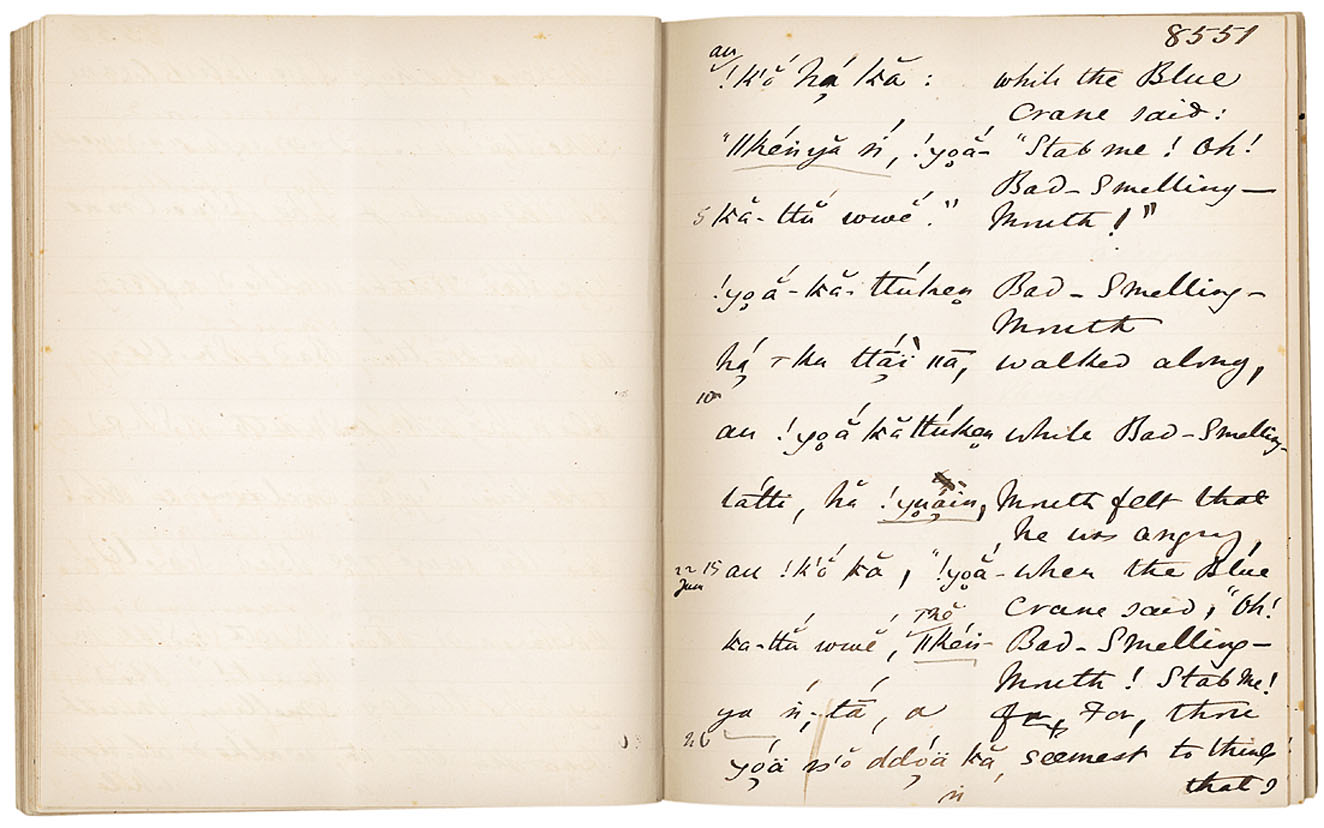 8551
au
!k'ŏ há kă : while the Blue
Crane said:
"||kén yă ń, !yoá- "Stab me! Oh!
Bad-Smelling-
5 kă-ttŭ wwĕ." Mouth!"
!yoá-kă-ttúken Bad-Smelling-
Mouth
há ‒ku ttáï ||ā, walked along,
10
au !yoá kă ttúken while Bad-Smelling-
tátti, hă !yuáin, Mouth felt that
he was angry,
22 15 au !k'ŏ kă, "!yoá- when the Blue
Jan
Crane said, "Oh!
ka-ttŭ wwĕ, ||kén- Bad-Smelling-
Mouth! Stab me!
ya ń; tā, a For, thou
20
yóä ddóä kă seemest to think
ń that I